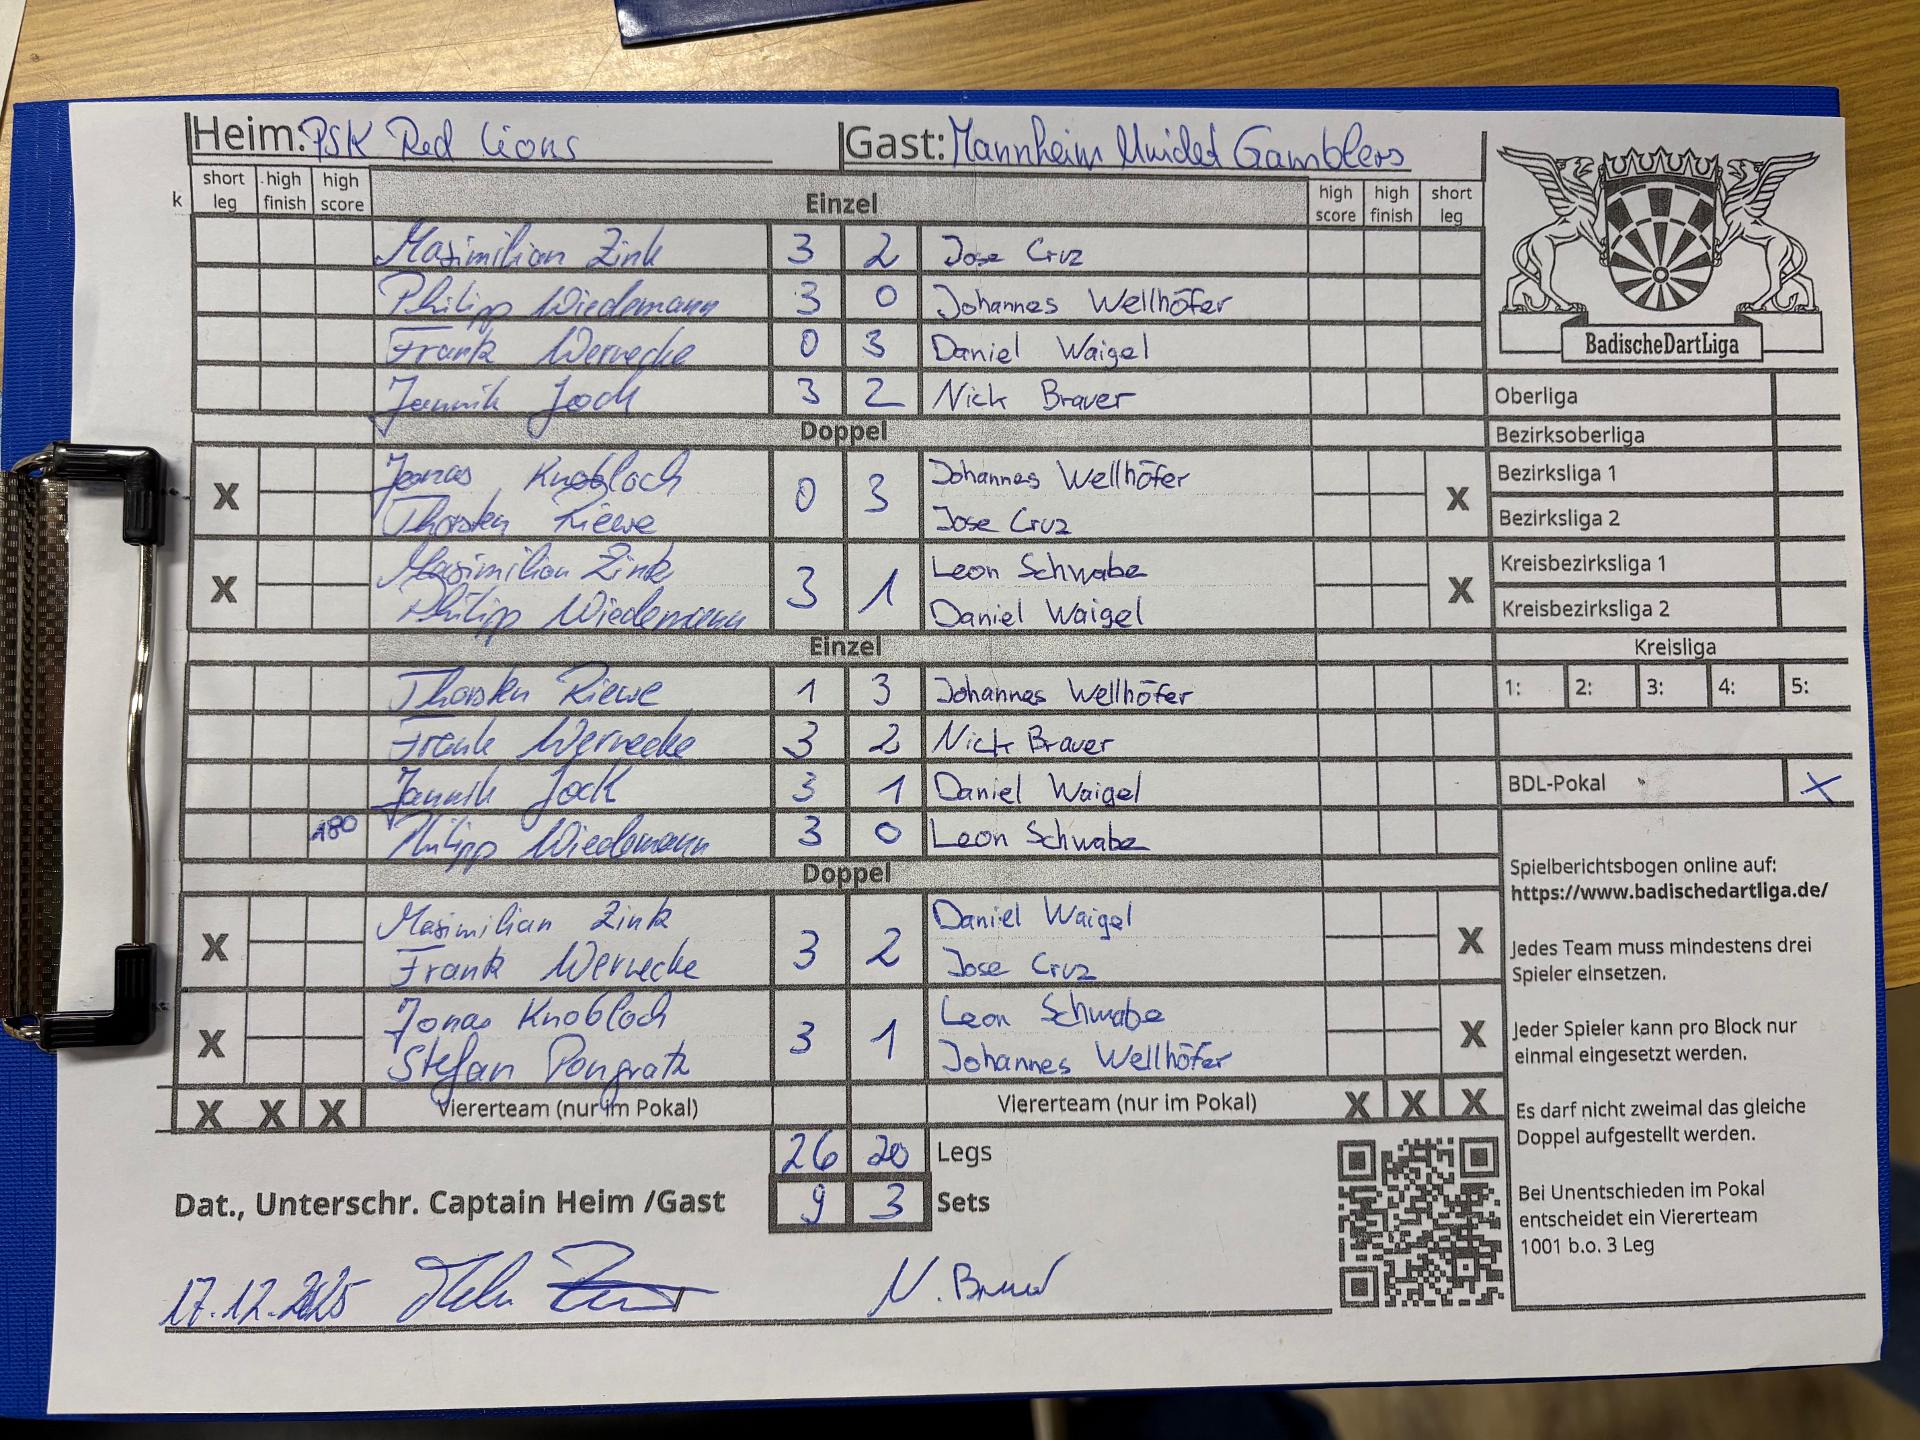 Heim: PSK Red Lions Gast: Mannheim Unidet Gamblers
k short leg high finish high score Einzel high score high finish short leg
Maximilian Zink 3 2 Jose Cruz
Philipp Wiedemann 3 0 Johannes Wellhöfer
Frank Wernecke 0 3 Daniel Waigel
Jannik Jock 3 2 Nick Brauer
Doppel
X Jonas Knobloch 0 3 Johannes Wellhöfer X
Thorsten Riewe Jose Cruz
X Maximilian Zink 3 1 Leon Schwabe X
Philipp Wiedemann Daniel Waigel
Einzel
Thorsten Riewe 1 3 Johannes Wellhöfer
Frank Wernecke 3 2 Nick Brauer
Jannik Jock 3 1 Daniel Waigel
180 Philipp Wiedemann 3 0 Leon Schwabe
Doppel
X Maximilian Zink 3 2 Daniel Waigel X
Frank Wernecke Jose Cruz
X Jonas Knobloch 3 1 Leon Schwabe X
Stefan Pongratz Johannes Wellhöfer
X X X Viererteam (nur im Pokal) Viererteam (nur im Pokal) X X X
26 20 Legs
Dat., Unterschr. Captain Heim /Gast 9 3 Sets
17.12.2025 N. Brauer
BadischeDartLiga
Oberliga
Bezirksoberliga
Bezirksliga 1
Bezirksliga 2
Kreisbezirksliga 1
Kreisbezirksliga 2
Kreisliga
1: 2: 3: 4: 5:
BDL-Pokal X
Spielberichtsbogen online auf:
https://www.badischedartliga.de/
Jedes Team muss mindestens drei
Spieler einsetzen.
Jeder Spieler kann pro Block nur
einmal eingesetzt werden.
Es darf nicht zweimal das gleiche
Doppel aufgestellt werden.
Bei Unentschieden im Pokal
entscheidet ein Viererteam
1001 b.o. 3 Leg